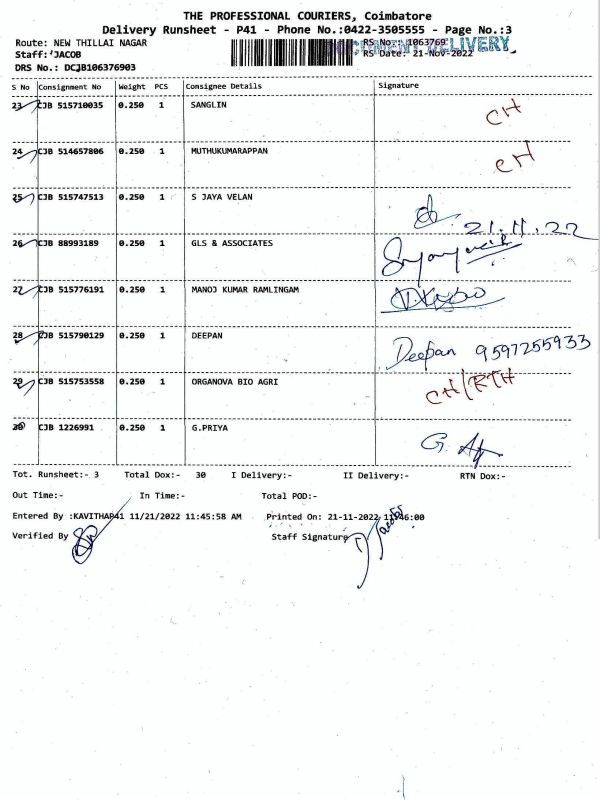 THE PROFESSIONAL COURIERS, Coimbatore
Delivery Runsheet - P41 - Phone No.:0422-3505555 - Page No.:3
Route: NEW THILLAI NAGAR
RS No.: 1063769
DOCUMENT DELIVERY
Staff: JACOB
RS Date: 21-Nov-2022
DRS No.: DCJB106376903
S No Consignment No Weight PCS Consignee Details Signature
23 CJB 515710035 0.250 1 SANGLIN CH
24 CJB 514657806 0.250 1 MUTHUKUMARAPPAN CH
25 CJB 515747513 0.250 1 S JAYA VELAN
21.11.22
26 CJB 88993189 0.250 1 GLS & ASSOCIATES
27 CJB 515776191 0.250 1 MANOJ KUMAR RAMLINGAM
28 CJB 515790129 0.250 1 DEEPAN Deepan 9597255933
29 CJB 515753558 0.250 1 ORGANOVA BIO AGRI CH/RTH
30 CJB 1226991 0.250 1 G.PRIYA G.
Tot. Runsheet:- 3 Total Dox:- 30 I Delivery:- II Delivery:- RTN Dox:-
Out Time:- In Time:- Total POD:-
Entered By :KAVITHAP41 11/21/2022 11:45:58 AM Printed On: 21-11-2022 11:46:00
Verified By Staff Signature Jacob